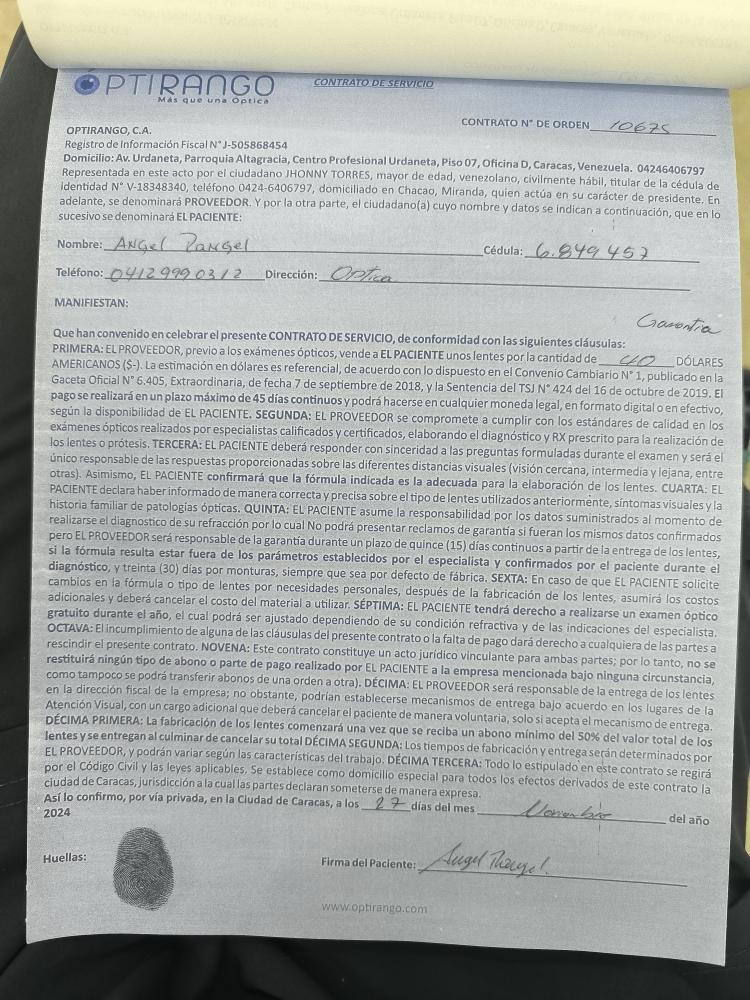 OPTIRANGO
Más que una Optica
CONTRATO DE SERVICIO
CONTRATO N° DE ORDEN 10675
OPTIRANGO, C.A.
Registro de Información Fiscal N° J-505868454
Domicilio: Av. Urdaneta, Parroquia Altagracia, Centro Profesional Urdaneta, Piso 07, Oficina D, Caracas, Venezuela. 04246406797
Representada en este acto por el ciudadano JHONNY TORRES, mayor de edad, venezolano, civilmente hábil, titular de la cédula de
identidad N° V-18348340, teléfono 0424-6406797, domiciliado en Chacao, Miranda, quien actúa en su carácter de presidente. En
adelante, se denominará PROVEEDOR. Y por la otra parte, el ciudadano(a) cuyo nombre y datos se indican a continuación, que en lo
sucesivo se denominará EL PACIENTE:
Nombre: Angel Rangel Cédula: 6.849457
Teléfono: 0412 999 0312 Dirección: Optica
MANIFIESTAN:
Garantia
Que han convenido en celebrar el presente CONTRATO DE SERVICIO, de conformidad con las siguientes cláusulas:
PRIMERA: EL PROVEEDOR, previo a los exámenes ópticos, vende a EL PACIENTE unos lentes por la cantidad de 40 DÓLARES
AMERICANOS ($-). La estimación en dólares es referencial, de acuerdo con lo dispuesto en el Convenio Cambiario N° 1, publicado en la
Gaceta Oficial N° 6.405, Extraordinaria, de fecha 7 de septiembre de 2018, y la Sentencia del TSJ N° 424 del 16 de octubre de 2019. El
pago se realizará en un plazo máximo de 45 días continuos y podrá hacerse en cualquier moneda legal, en formato digital o en efectivo,
según la disponibilidad de EL PACIENTE. SEGUNDA: EL PROVEEDOR se compromete a cumplir con los estándares de calidad en los
exámenes ópticos realizados por especialistas calificados y certificados, elaborando el diagnóstico y RX prescrito para la realización de
los lentes o prótesis. TERCERA: EL PACIENTE deberá responder con sinceridad a las preguntas formuladas durante el examen y será el
único responsable de las respuestas proporcionadas sobre las diferentes distancias visuales (visión cercana, intermedia y lejana, entre
otras). Asimismo, EL PACIENTE confirmará que la fórmula indicada es la adecuada para la elaboración de los lentes. CUARTA: EL
PACIENTE declara haber informado de manera correcta y precisa sobre el tipo de lentes utilizados anteriormente, síntomas visuales y la
historia familiar de patologías ópticas. QUINTA: EL PACIENTE asume la responsabilidad por los datos suministrados al momento de
realizarse el diagnostico de su refracción por lo cual No podrá presentar reclamos de garantía si fueran los mismos datos confirmados
pero EL PROVEEDOR será responsable de la garantía durante un plazo de quince (15) días continuos a partir de la entrega de los lentes,
si la fórmula resulta estar fuera de los parámetros establecidos por el especialista y confirmados por el paciente durante el
diagnóstico, y treinta (30) días por monturas, siempre que sea por defecto de fábrica. SEXTA: En caso de que EL PACIENTE solicite
cambios en la fórmula o tipo de lentes por necesidades personales, después de la fabricación de los lentes, asumirá los costos
adicionales y deberá cancelar el costo del material a utilizar. SÉPTIMA: EL PACIENTE tendrá derecho a realizarse un examen óptico
gratuito durante el año, el cual podrá ser ajustado dependiendo de su condición refractiva y de las indicaciones del especialista.
OCTAVA: El incumplimiento de alguna de las cláusulas del presente contrato o la falta de pago dará derecho a cualquiera de las partes a
rescindir el presente contrato. NOVENA: Este contrato constituye un acto jurídico vinculante para ambas partes; por lo tanto, no se
restituirá ningún tipo de abono o parte de pago realizado por EL PACIENTE a la empresa mencionada bajo ninguna circunstancia,
como tampoco se podrá transferir abonos de una orden a otra). DÉCIMA: EL PROVEEDOR será responsable de la entrega de los lentes
en la dirección fiscal de la empresa; no obstante, podrían establecerse mecanismos de entrega bajo acuerdo en los lugares de la
Atención Visual, con un cargo adicional que deberá cancelar el paciente de manera voluntaria, solo si acepta el mecanismo de entrega.
DÉCIMA PRIMERA: La fabricación de los lentes comenzará una vez que se reciba un abono mínimo del 50% del valor total de los
lentes y se entregan al culminar de cancelar su total DÉCIMA SEGUNDA: Los tiempos de fabricación y entrega serán determinados por
EL PROVEEDOR, y podrán variar según las características del trabajo. DÉCIMA TERCERA: Todo lo estipulado en este contrato se regirá
por el Código Civil y las leyes aplicables. Se establece como domicilio especial para todos los efectos derivados de este contrato la
ciudad de Caracas, jurisdicción a la cual las partes declaran someterse de manera expresa.
Así lo confirmo, por vía privada, en la Ciudad de Caracas, a los 27 días del mes Noviembre del año
2024
Huellas:
Firma del Paciente: Angel Rangel
www.optirango.com